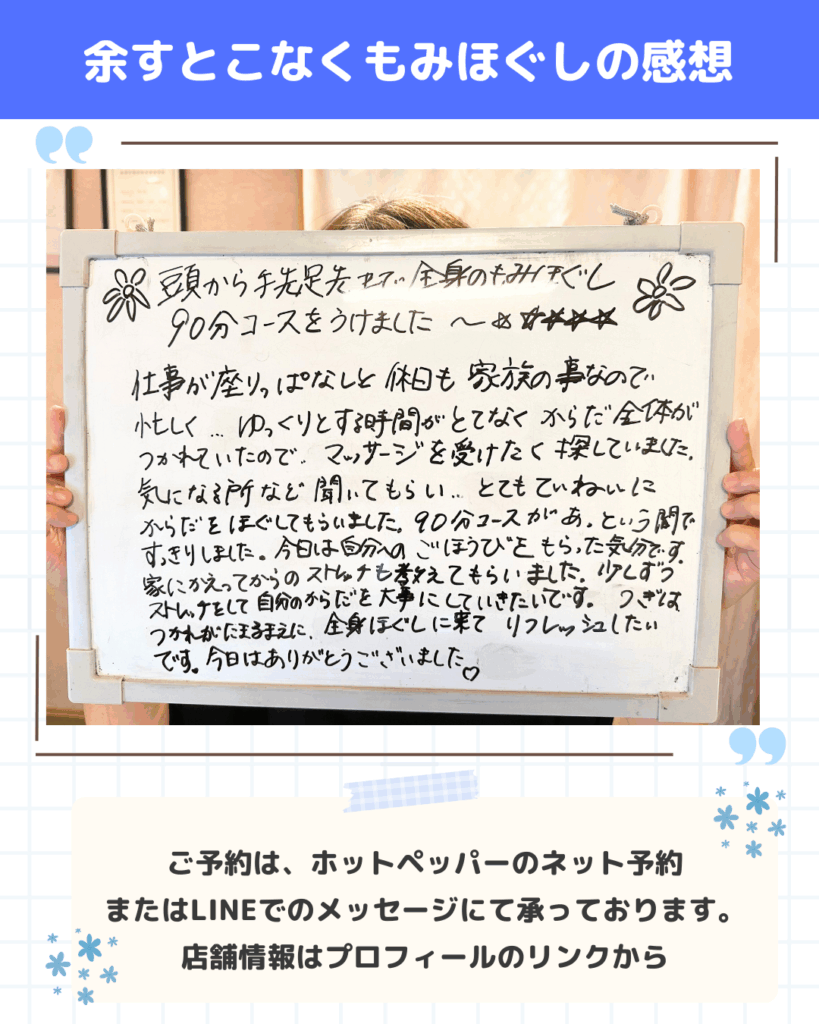 余すとこなくもみほぐしの感想
頭から手先足先まで全身のもみほぐし
90分コースをうけました 〜☆☆☆☆☆
仕事が座りっぱなしと休日も家族の事なので
忙しく…ゆっくりとする時間がとてなく からだ全体が
つかれていたので、マッサージを受けたく探していました。
気になる所など聞いてもらい…とてもていねいに
からだをほぐしてもらいました。90分コースがあ。という間で
すっきりしました。今日は自分へのごほうびをもらった気分です。
家にかえってからのストレッチも教えてもらいました。少しずつ
ストレッチをして自分のからだを大事にしていきたいです。つぎは
つかれがたまるまえに、全身ほぐしに来てリフレッシュしたい
です。今日はありがとうございました♡
ご予約は、ホットペッパーのネット予約
またはLINEでのメッセージにて承っております。
店舗情報はプロフィールのリンクから